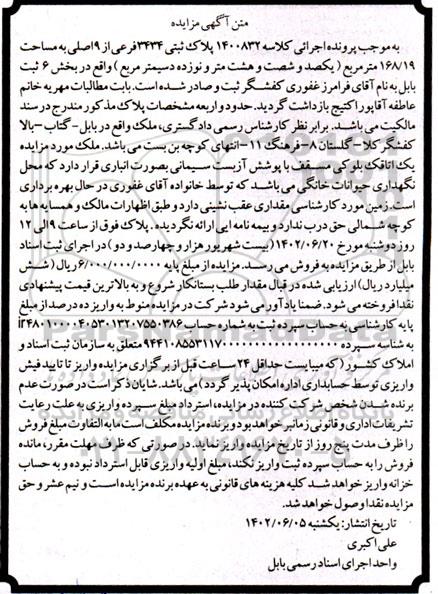 متن آگهی مزایده
به موجب پرونده اجرائی کلاسه ۱۴۰۰۸۳۲ پلاک ثبتی ۳۴۳۴ فرعی از ۹ اصلی به مساحت
۱۶۸/۱۹ متر مربع ( یکصد و شصت و هشت متر و نوزده دسیمتر مربع ) واقع در بخش ۶ ثبت
بابل به نام آقای فرامرز غفوری کفشگر ثبت و صادر شده است. بابت مطالبات مهریه خانم
عاطفه آقاپور اکتیج بازداشت گردید. حدود اربعه مشخصات پلاک مذکور مندرج در سند
مالکیت می باشد. برابر نظر کارشناس رسمی دادگستری، ملک واقع در بابل - گتاب - بالا
کفشگر کلا - گلستان ۸ - فرهنگ ۱۱ - انتهای کوچه بن بست می باشد. ملک مورد مزایده
یک اتاقک بلوکی مسقف با پوشش آزبست سیمانی بصورت انباری قرار دارد که محل
نگهداری حیوانات خانگی می باشد که توسط خانواده آقای غفوری در حال بهره برداری
است. زمین مورد کارشناسی مقداری عقب نشینی دارد و طبق اظهارات مالک و همسایه ها به
کوچه شمالی حق درب ندارد و بیمه نامه ایی ارائه نگردیده. پلاک فوق از ساعت ۹ الی ۱۲
روز دوشنبه مورخ ۱۴۰۲/۰۶/۲۰ (بیست شهریور هزار و چهارصد و دو) در اجرای ثبت اسناد
بابل از طریق مزایده به فروش می رسد. مزایده از مبلغ پایه ۶/۰۰۰/۰۰۰/۰۰۰ ریال (شش
میلیارد ریال) ارزیابی شده در قبال مقدار طلب بستانکار شروع و به بالاترین قیمت پیشنهادی
نقدا فروخته می شود. ضمنا یادآور می شود شرکت در مزایده منوط به واریز ده درصد از مبلغ
پایه کارشناسی به حساب سپرده ثبت به شماره حساب
به شناسه سپرده متعلق به سازمان ثبت اسناد و
املاک کشور (که میبایست حداقل ۲۴ ساعت قبل از برگزاری مزایده واریز تا تایید فیش
واریزی توسط حسابداری اداره امکان پذیر گردد) می باشد. شایان ذکر است در صورت عدم
برنده شدن شخص شرکت کننده در مزایده، استرداد مبلغ سپرده واریزی به علت رعایت
تشریفات اداری و قانونی زمانبر خواهد بود و برنده مزایده مکلف است ما به التفاوت مبلغ فروش
را ظرف مدت پنج روز از تاریخ مزایده واریز نماید. در صورتی که ظرف مهلت مقرر، مانده
فروش را به حساب سپرده ثبت واریز نکند، مبلغ اولیه واریزی قابل استرداد نبوده و به حساب
خزانه واریز خواهد شد. کلیه هزینه های قانونی به عهده برنده مزایده است و نیم عشر و حق
مزایده نقدا وصول خواهد شد.
تاریخ انتشار: یکشنبه ۱۴۰۲/۰۶/۰۵
علی اکبری
واحد اجرای اسناد رسمی بابل